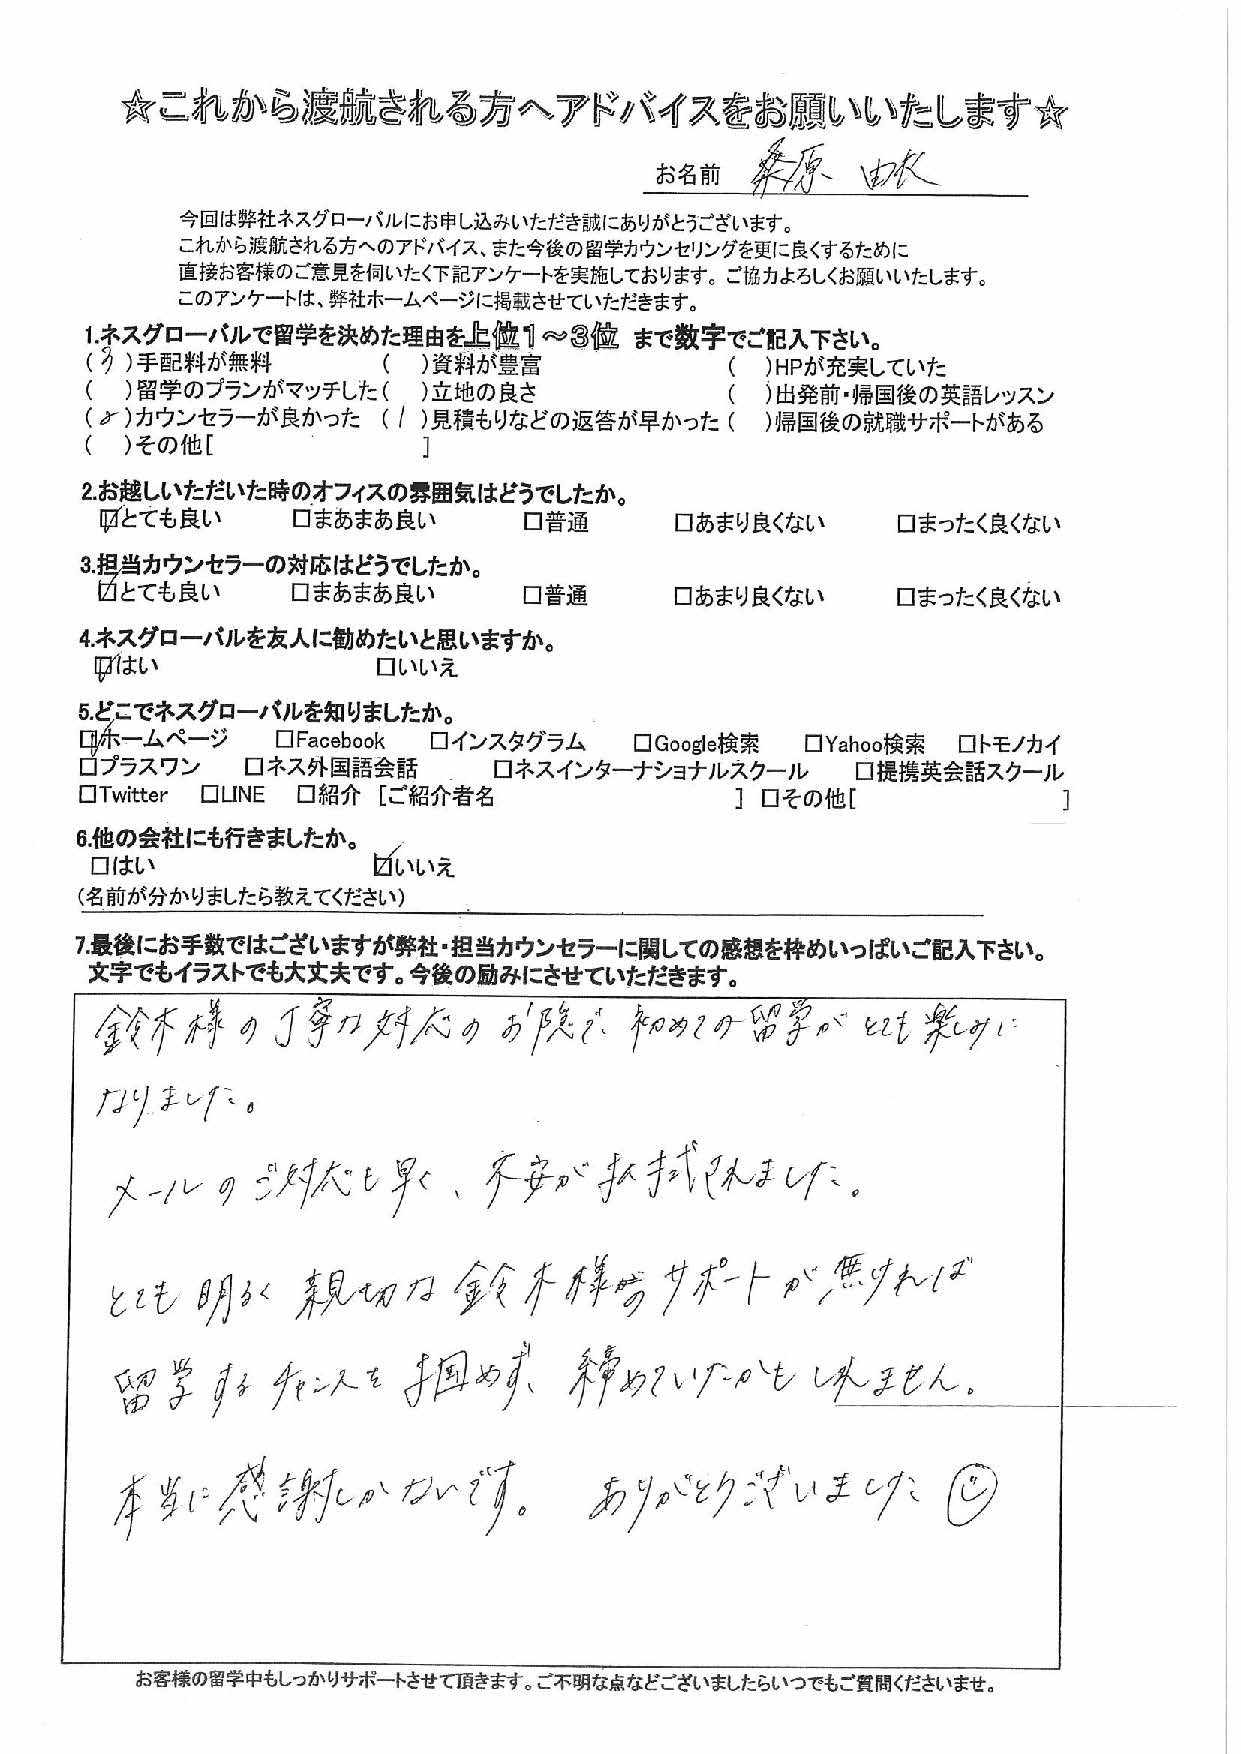 ☆これから渡航される方へアドバイスをお願いいたします☆
お名前 桑原 由衣
今回は弊社ネスグローバルにお申し込みいただき誠にありがとうございます。
これから渡航される方へのアドバイス、また今後の留学カウンセリングを更に良くするために
直接お客様のご意見を伺いたく下記アンケートを実施しております。ご協力よろしくお願いいたします。
このアンケートは、弊社ホームページに掲載させていただきます。
1.ネスグローバルで留学を決めた理由を上位1～3位 まで数字でご記入下さい。
(3)手配料が無料 ( )資料が豊富 ( )HPが充実していた
( )留学のプランがマッチした ( )立地の良さ ( )出発前・帰国後の英語レッスン
(2)カウンセラーが良かった (1)見積もりなどの返答が早かった ( )帰国後の就職サポートがある
( )その他[ ]
2.お越しいただいた時のオフィスの雰囲気はどうでしたか。
☑とても良い □まあまあ良い □普通 □あまり良くない □まったく良くない
3.担当カウンセラーの対応はどうでしたか。
☑とても良い □まあまあ良い □普通 □あまり良くない □まったく良くない
4.ネスグローバルを友人に勧めたいと思いますか。
☑はい □いいえ
5.どこでネスグローバルを知りましたか。
☑ホームページ □Facebook □インスタグラム □Google検索 □Yahoo検索 □トモノカイ
□プラスワン □ネス外国語会話 □ネスインターナショナルスクール □提携英会話スクール
□Twitter □LINE □紹介 [ご紹介者名 ] □その他[ ]
6.他の会社にも行きましたか。
□はい ☑いいえ
(名前が分かりましたら教えてください)
7.最後にお手数ではございますが弊社・担当カウンセラーに関しての感想を枠めいっぱいご記入下さい。
文字でもイラストでも大丈夫です。今後の励みにさせていただきます。
鈴木様の丁寧な対応のお陰で、初めての留学がとても楽しみに
なりました。
メールのご対応も早く、不安が払拭されました。
とても明るく親切な鈴木様のサポートが無ければ
留学するチャンスを掴めず、締めていたかもしれません。
本当に感謝しかないです。 ありがとうございました
お客様の留学中もしっかりサポートさせて頂きます。ご不明な点などございましたらいつでもご質問くださいませ。